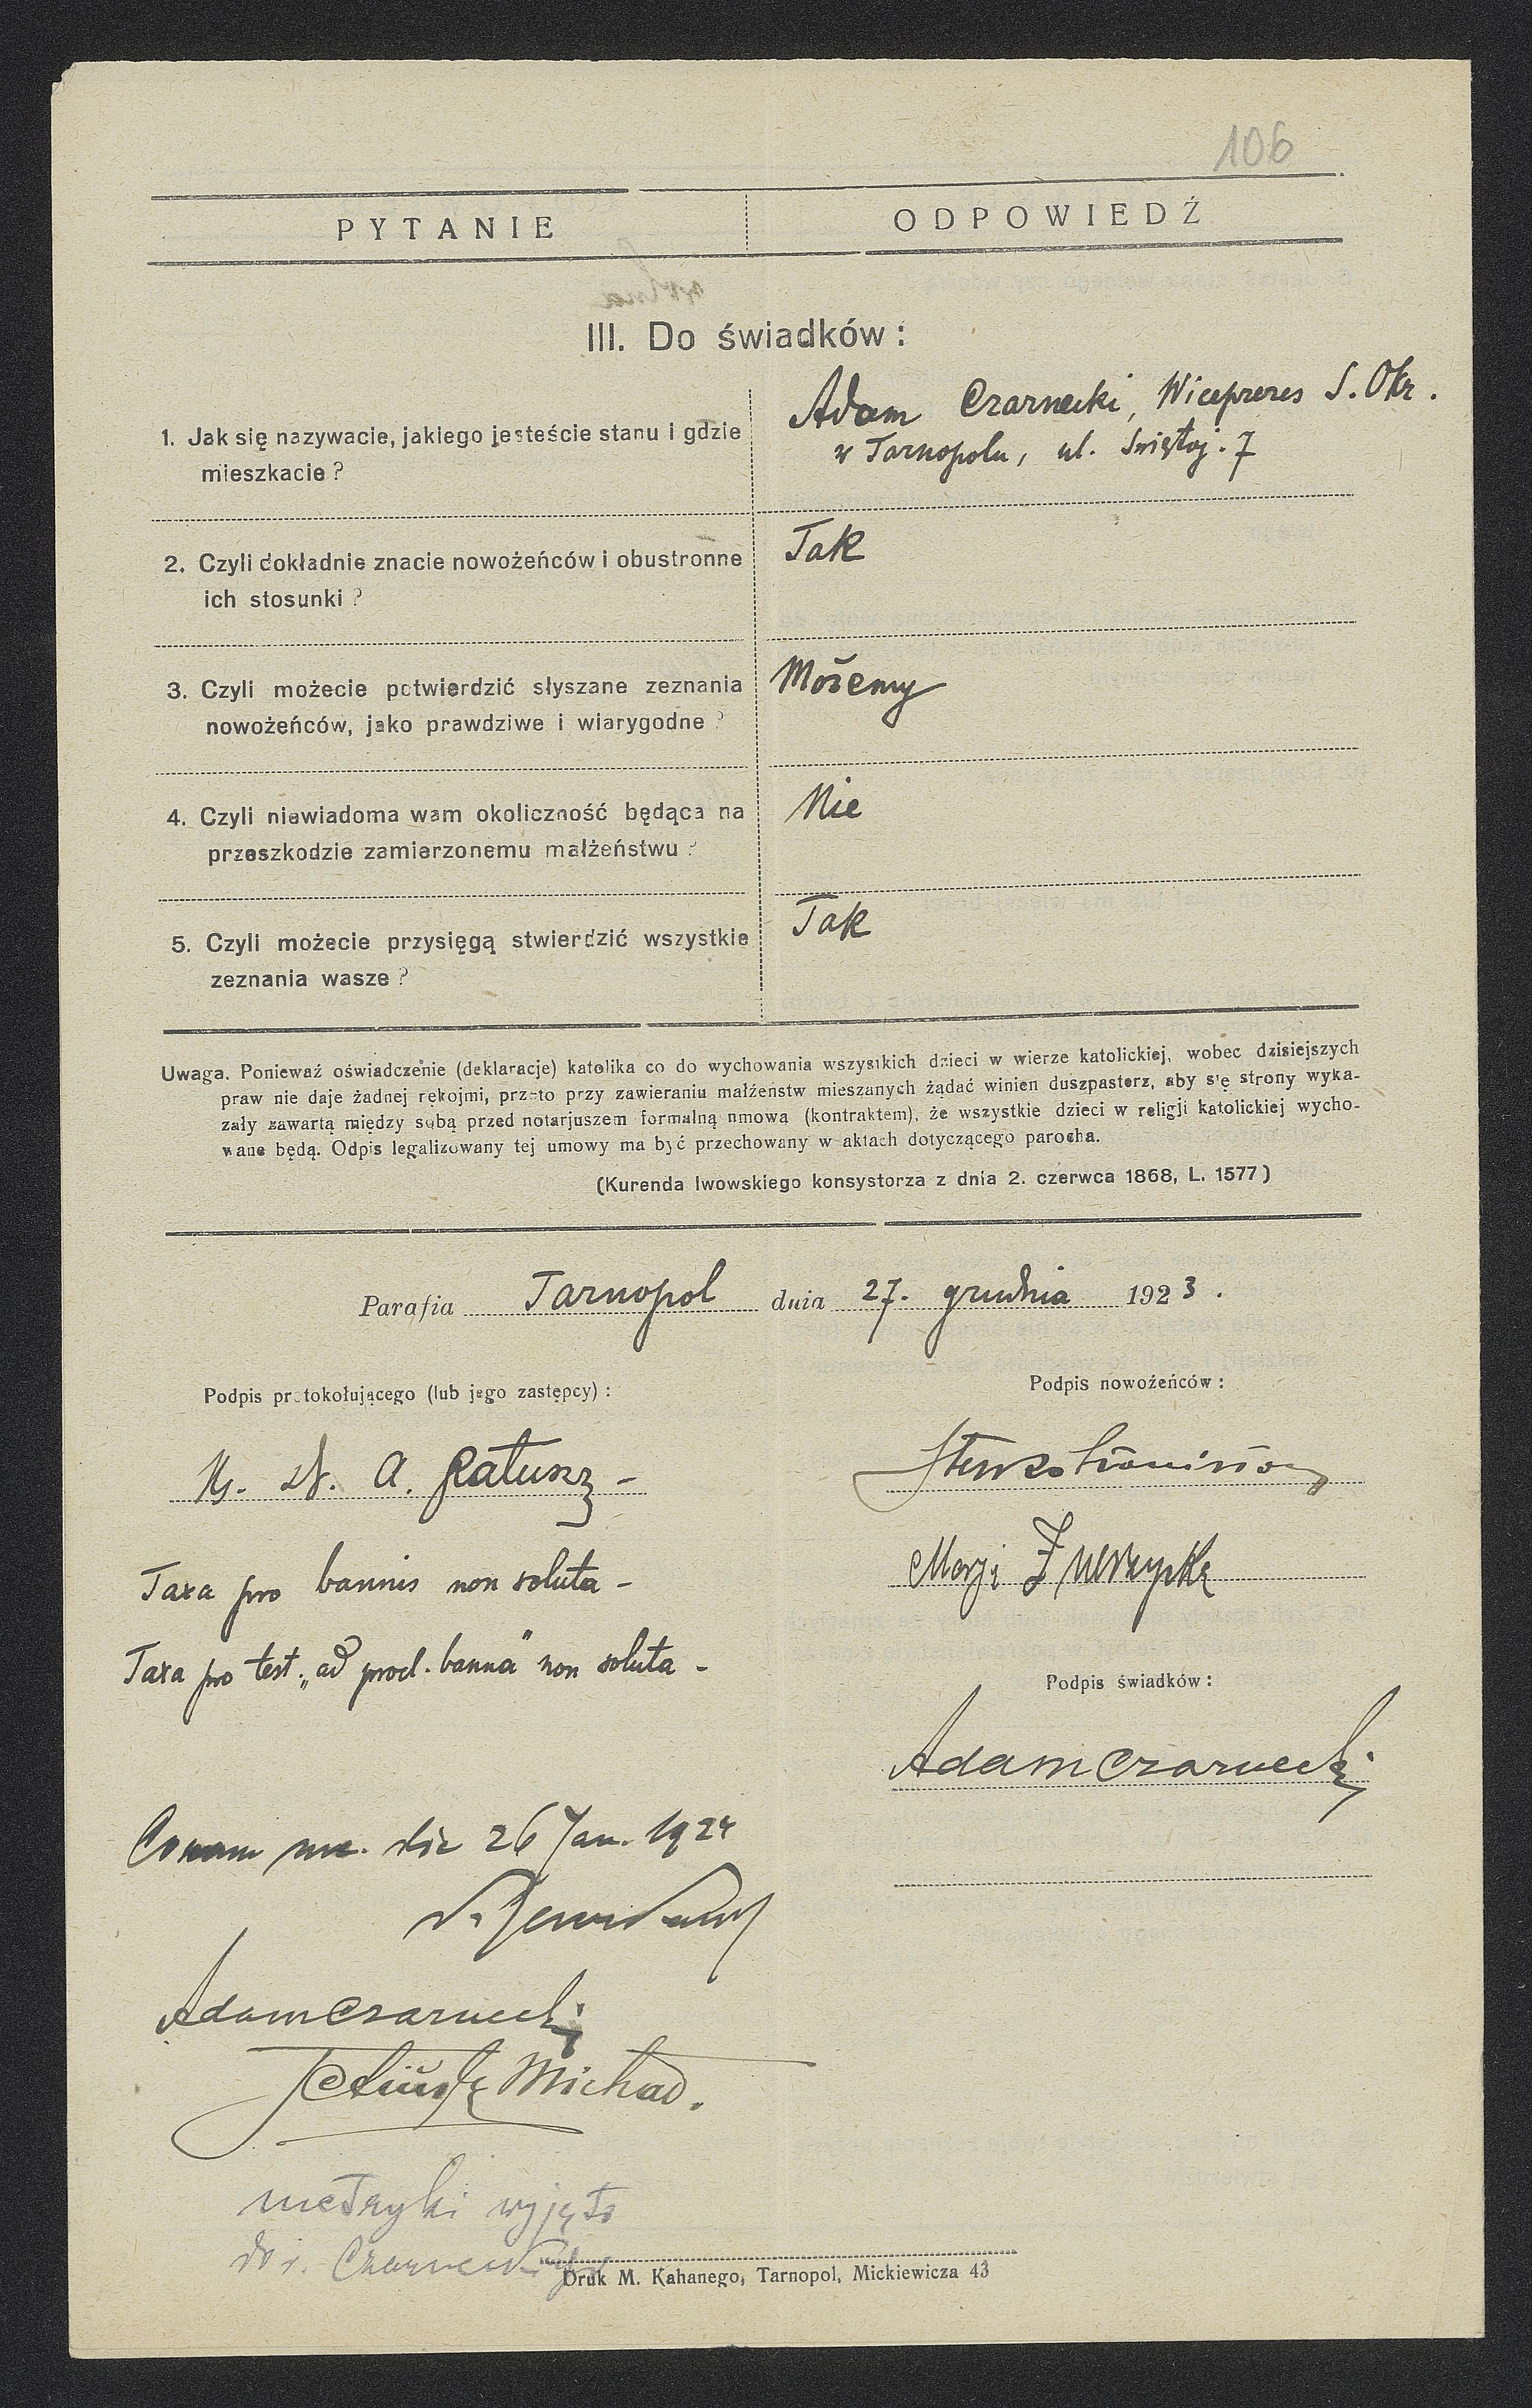 106
PYTANIE
ODPOWIEDŹ
III. Do świadków:
1. Jak się nazywacie, jakiego jesteście stanu i gdzie
mieszkacie?
Adam Czarnecki, Wiceprezes S. Okr.
w Tarnopolu, ul. Świętoj. 7
2. Czyli dokładnie znacie nowożeńców i obustronne
ich stosunki?
Tak
3. Czyli możecie potwierdzić słyszane zeznania
nowożeńców, jako prawdziwe i wiarygodne?
Możemy
4. Czyli niewiadoma wam okoliczność będąca na
przeszkodzie zamierzonemu małżeństwu?
Nie
5. Czyli możecie przysięgą stwierdzić wszystkie
zeznania wasze?
Tak
Uwaga. Ponieważ oświadczenie (deklaracje) katolika co do wychowania wszystkich dzieci w wierze katolickiej, wobec dzisiejszych
praw nie daje żadnej rękojmi, przeto przy zawieraniu małżeństw mieszanych żądać winien duszpasterz, aby się strony wyka-
zały zawartą między sobą przed notarjuszem formalną nmową (kontraktem), że wszystkie dzieci w religji katolickiej wycho-
wane będą. Odpis legalizowany tej umowy ma być przechowany w aktach dotyczącego parocha.
(Kurenda lwowskiego konsystorza z dnia 2. czerwca 1868, L. 1577)
Parafia Tarnopol dnia 27. grudnia 1923.
Podpis protokołującego (lub jego zastępcy):
Podpis nowożeńców:
A. Ratusz -
Taxa pro bannis non soluta -
Taxa pro test. „ad procl. banna" non soluta -
Podpis świadków:
Adam Czarnecki
Coram me. die 26 Jan. 1924
Adam Czarnecki
Michał.
metryki wyjęto
Druk M. Kahanego, Tarnopol, Mickiewicza 43